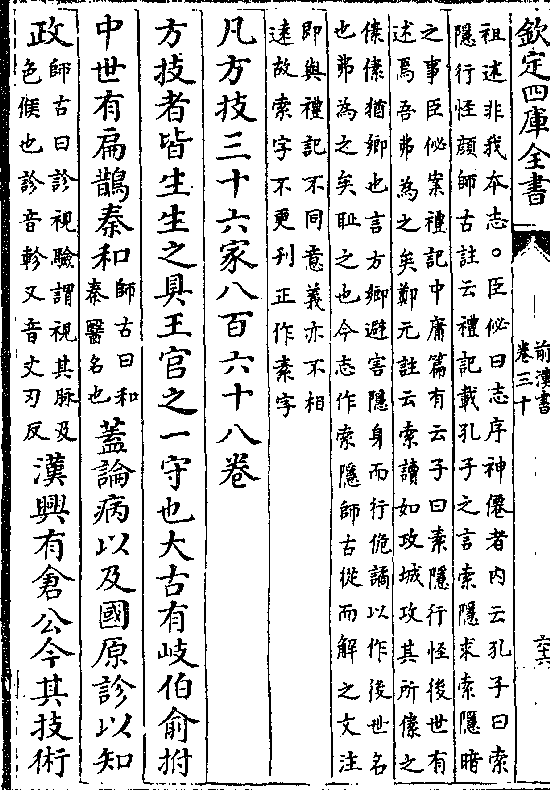 欽定四庫全書
前漢書
卷三十
六十六
祖述非我本志。臣佖曰志序神僊者内云孔子曰索
隱行怪顔師古註云禮記載孔子之言索隱求索隱暗
之事臣佖案禮記中庸篇有云子曰素隱行怪後世有
述焉吾弗為之矣鄭元註云索讀如攻城攻其所傃之
傃傃猶鄉也言方鄉避害隱身而行佹譎以作後世名
也弗為之矣耻之也今志作索隱師古從而解之文注
即與禮記不同意義亦不相
逺故索字不更刊正作素字
凡方技三十六家八百六十八卷
方技者皆生生之具王官之一守也大古有岐伯俞拊
中世有扁鵲秦和師古曰和秦醫名也蓋論病以及國原診以知
政師古曰診視驗謂視其脉及色候也診音軫又音丈刃反漢興有倉公今其技術